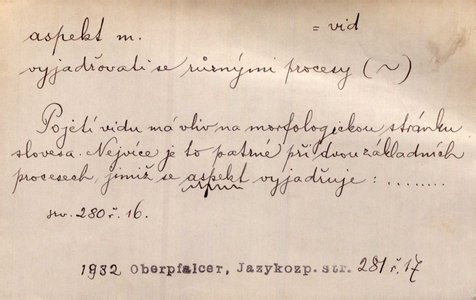 aspekt m. = vid
vyjadřovati se různými procesy (~)
Pojetí vidu má vliv na morfologickou stránku
slovesa. Nejvíce je to patrné při dvou základních
procesech, jimiž se aspekt vyjadřuje : ........
srv. 280 ř. 16.
1932 Oberpfalcer, Jazykozp. str. 281 ř. 17